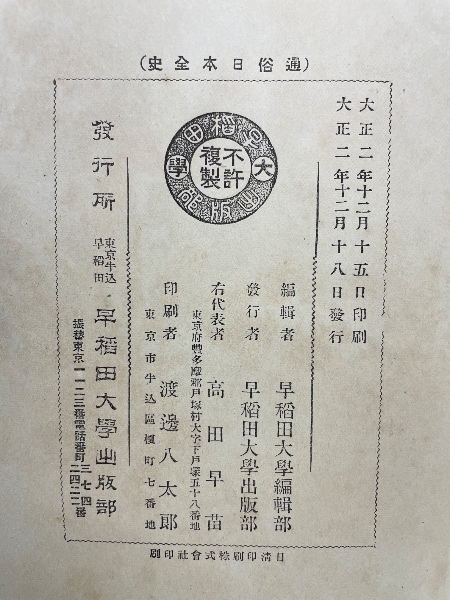 (通俗日本全史)
大正二年十二月十五日印刷
大正二年十二月十八日發行
早稻田大學出版部
不許複製
編輯者 早稻田大學編輯部
發行者 早稻田大學出版部
右代表者 高田早苗
東京府豐多摩郡戸塚村大字下戸塚五十八番地
印刷者 渡邊八太郎
東京市牛込區榎町七番地
發行所 東京牛込早稻田 早稻田大學出版部
振替東京一一二三番電話番町
日清印刷株式會社印刷